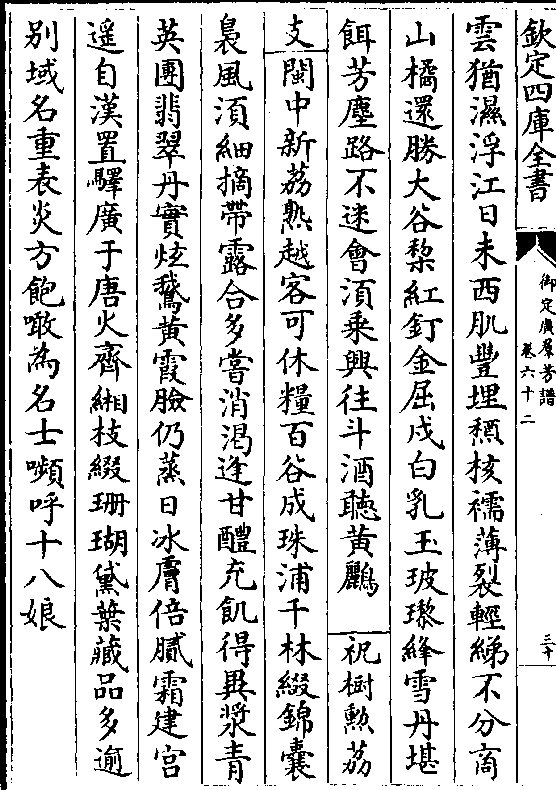 欽定四庫全書
御定廣羣芳譜
卷六十二
三十
雲猶濕浮江日未西肌豐埋穎核襦薄裂輕綈不分商
山橘還勝大谷棃紅釘金屈戍白乳玉玻瓈絳雪丹堪
餌芳塵路不迷會湏乗興往斗酒聽黄鸝 祝樹勲荔
支閩中新荔熟越客可休糧百谷成珠浦千林綴錦囊
裊風湏細摘帶露合多嘗消渇逢甘醴充飢得異漿青
英團翡翠丹實炫鵞黄霞臉仍蒸日冰膚倍膩霜建宫
遥自漢置驛廣于唐火齊緗枝綴珊瑚黛葉藏品多逾
别域名重表炎方飽噉為名士嚬呼十八娘